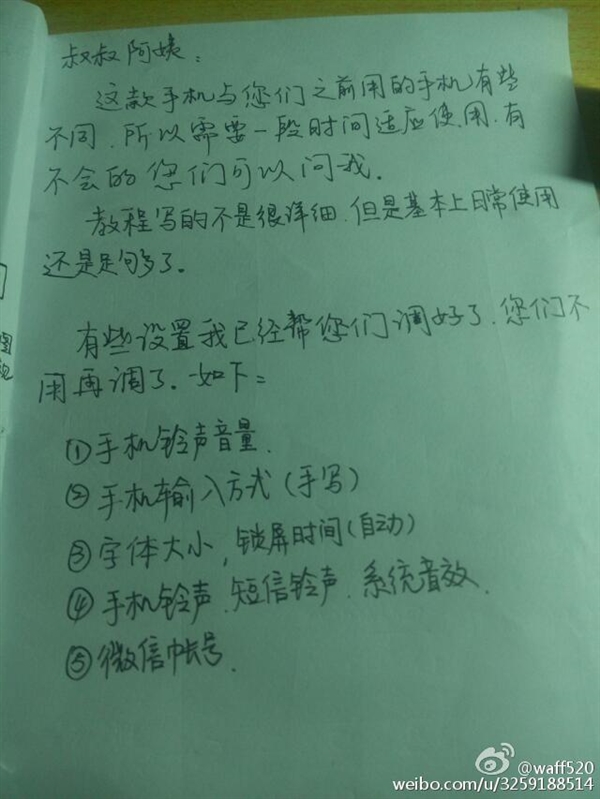 叔叔阿姨：
这款手机与您们之前用的手机有些
不同.所以需要一段时间适应使用.有
不会的您们可以问我.
教程写的不是很详细.但是基本上日常使用
还是足够了.
有些设置我已经帮您们调好了.您们不
用再调了.如下：
①手机铃声音量.
②手机输入方式(手写)
③字体大小,锁屏时间(自动)
④手机铃声.短信铃声.系统音效.
⑤微信帐号.
@waff520
weibo.com/u/3259188514